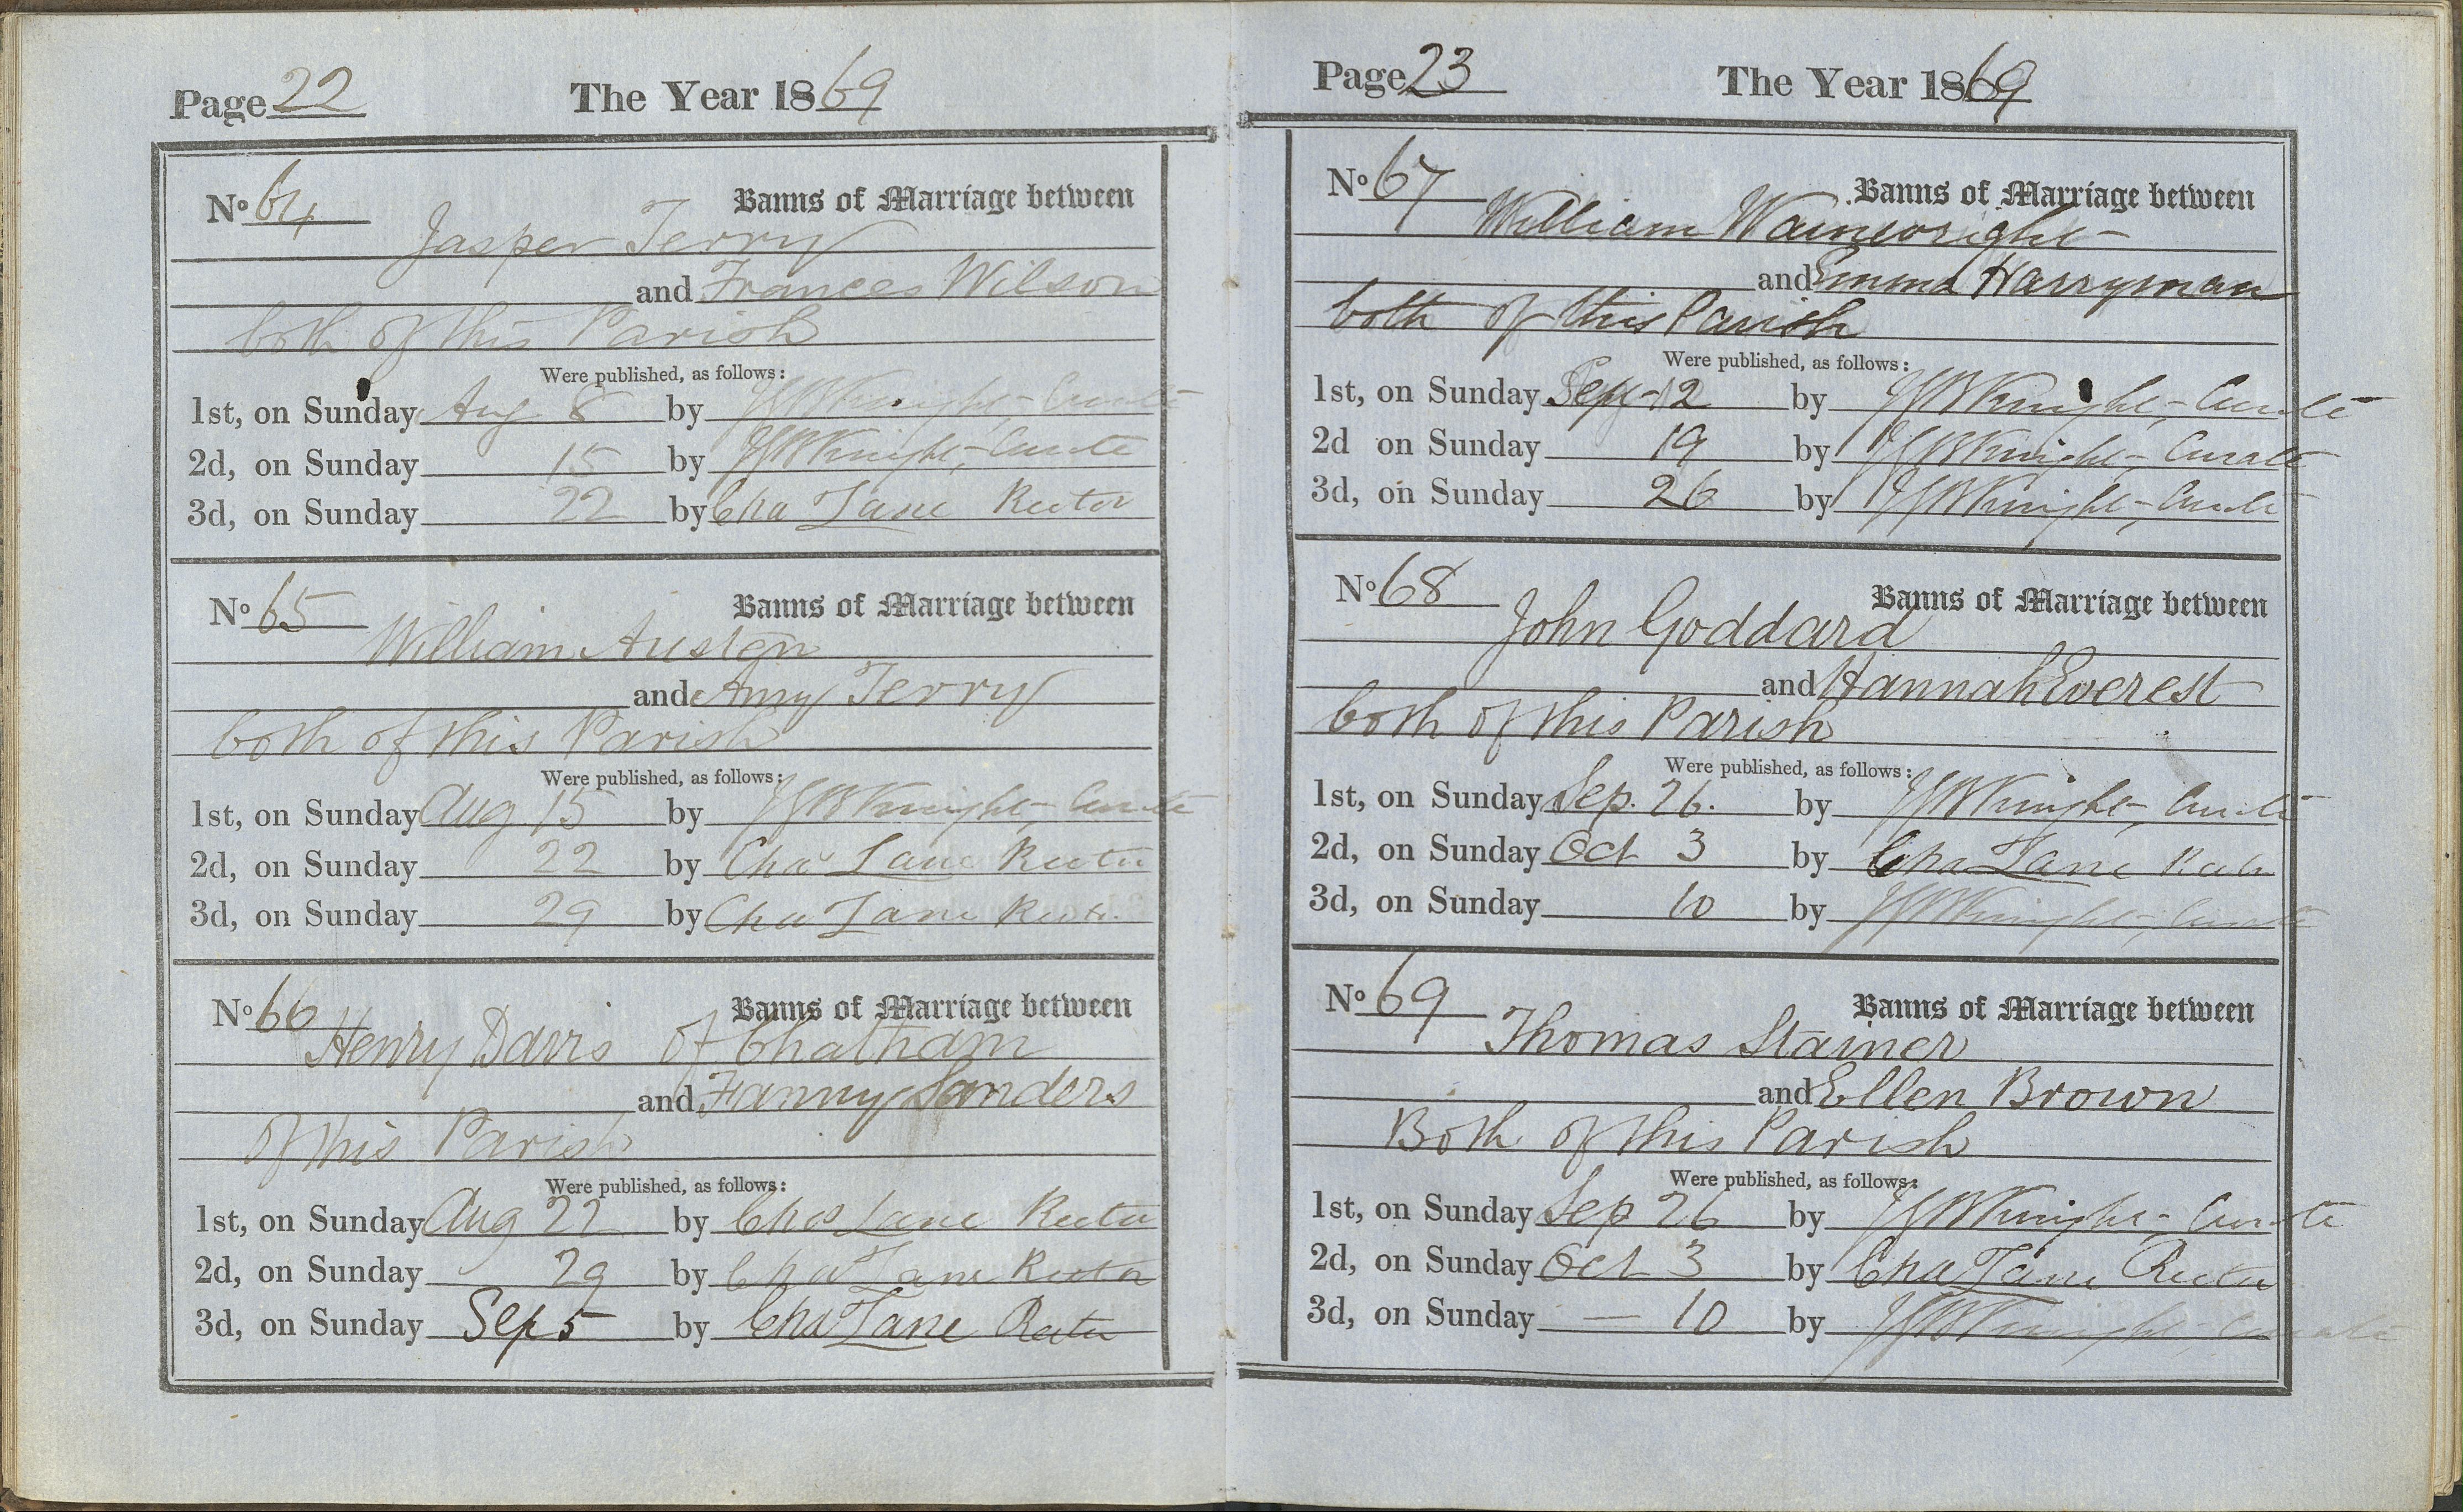 Page 22 The Year 1869
No 64 Banns of Marriage between
Jasper Terry
and Frances Wilson
both of this Parish
Were published, as follows:
1st, on Sunday Aug 8 by Knight, Curate
2d, on Sunday 15 by Knight, Curate
3d, on Sunday 22 by Chas Lane Rector
No 65 Banns of Marriage between
William Austen
and Amy Terry
both of this Parish
Were published, as follows:
1st, on Sunday Aug 15 by Knight, Curate
2d, on Sunday 22 by Chas Lane Rector
3d, on Sunday 29 by Chas Lane Rector
No 66 Banns of Marriage between
Henry Davis of Chatham
and Fanny Sanders
of this Parish
Were published, as follows:
1st, on Sunday Aug 22 by Chas Lane Rector
2d, on Sunday 29 by Chas Lane Rector
3d, on Sunday Sep 5 by Chas Lane Rector
Page 23 The Year 1869
No 67 Banns of Marriage between
William Wainwright
and Emma Harryman
both of this Parish
Were published, as follows:
1st, on Sunday Sep 12 by Knight, Curate
2d on Sunday 19 by Knight, Curate
3d, on Sunday 26 by Knight, Curate
No 68 Banns of Marriage between
John Goddard
and Hannah Everest
both of this Parish
Were published, as follows:
1st, on Sunday Sep. 26. by Knight, Curate
2d, on Sunday Oct 3 by Chas Lane Rector
3d, on Sunday 10 by Knight, Curate
No 69 Banns of Marriage between
Thomas Stainer
and Ellen Brown
Both of this Parish
Were published, as follows:
1st, on Sunday Sep 26 by Knight, Curate
2d, on Sunday Oct 3 by Chas Lane Rector
3d, on Sunday — 10 by Knight, Curate